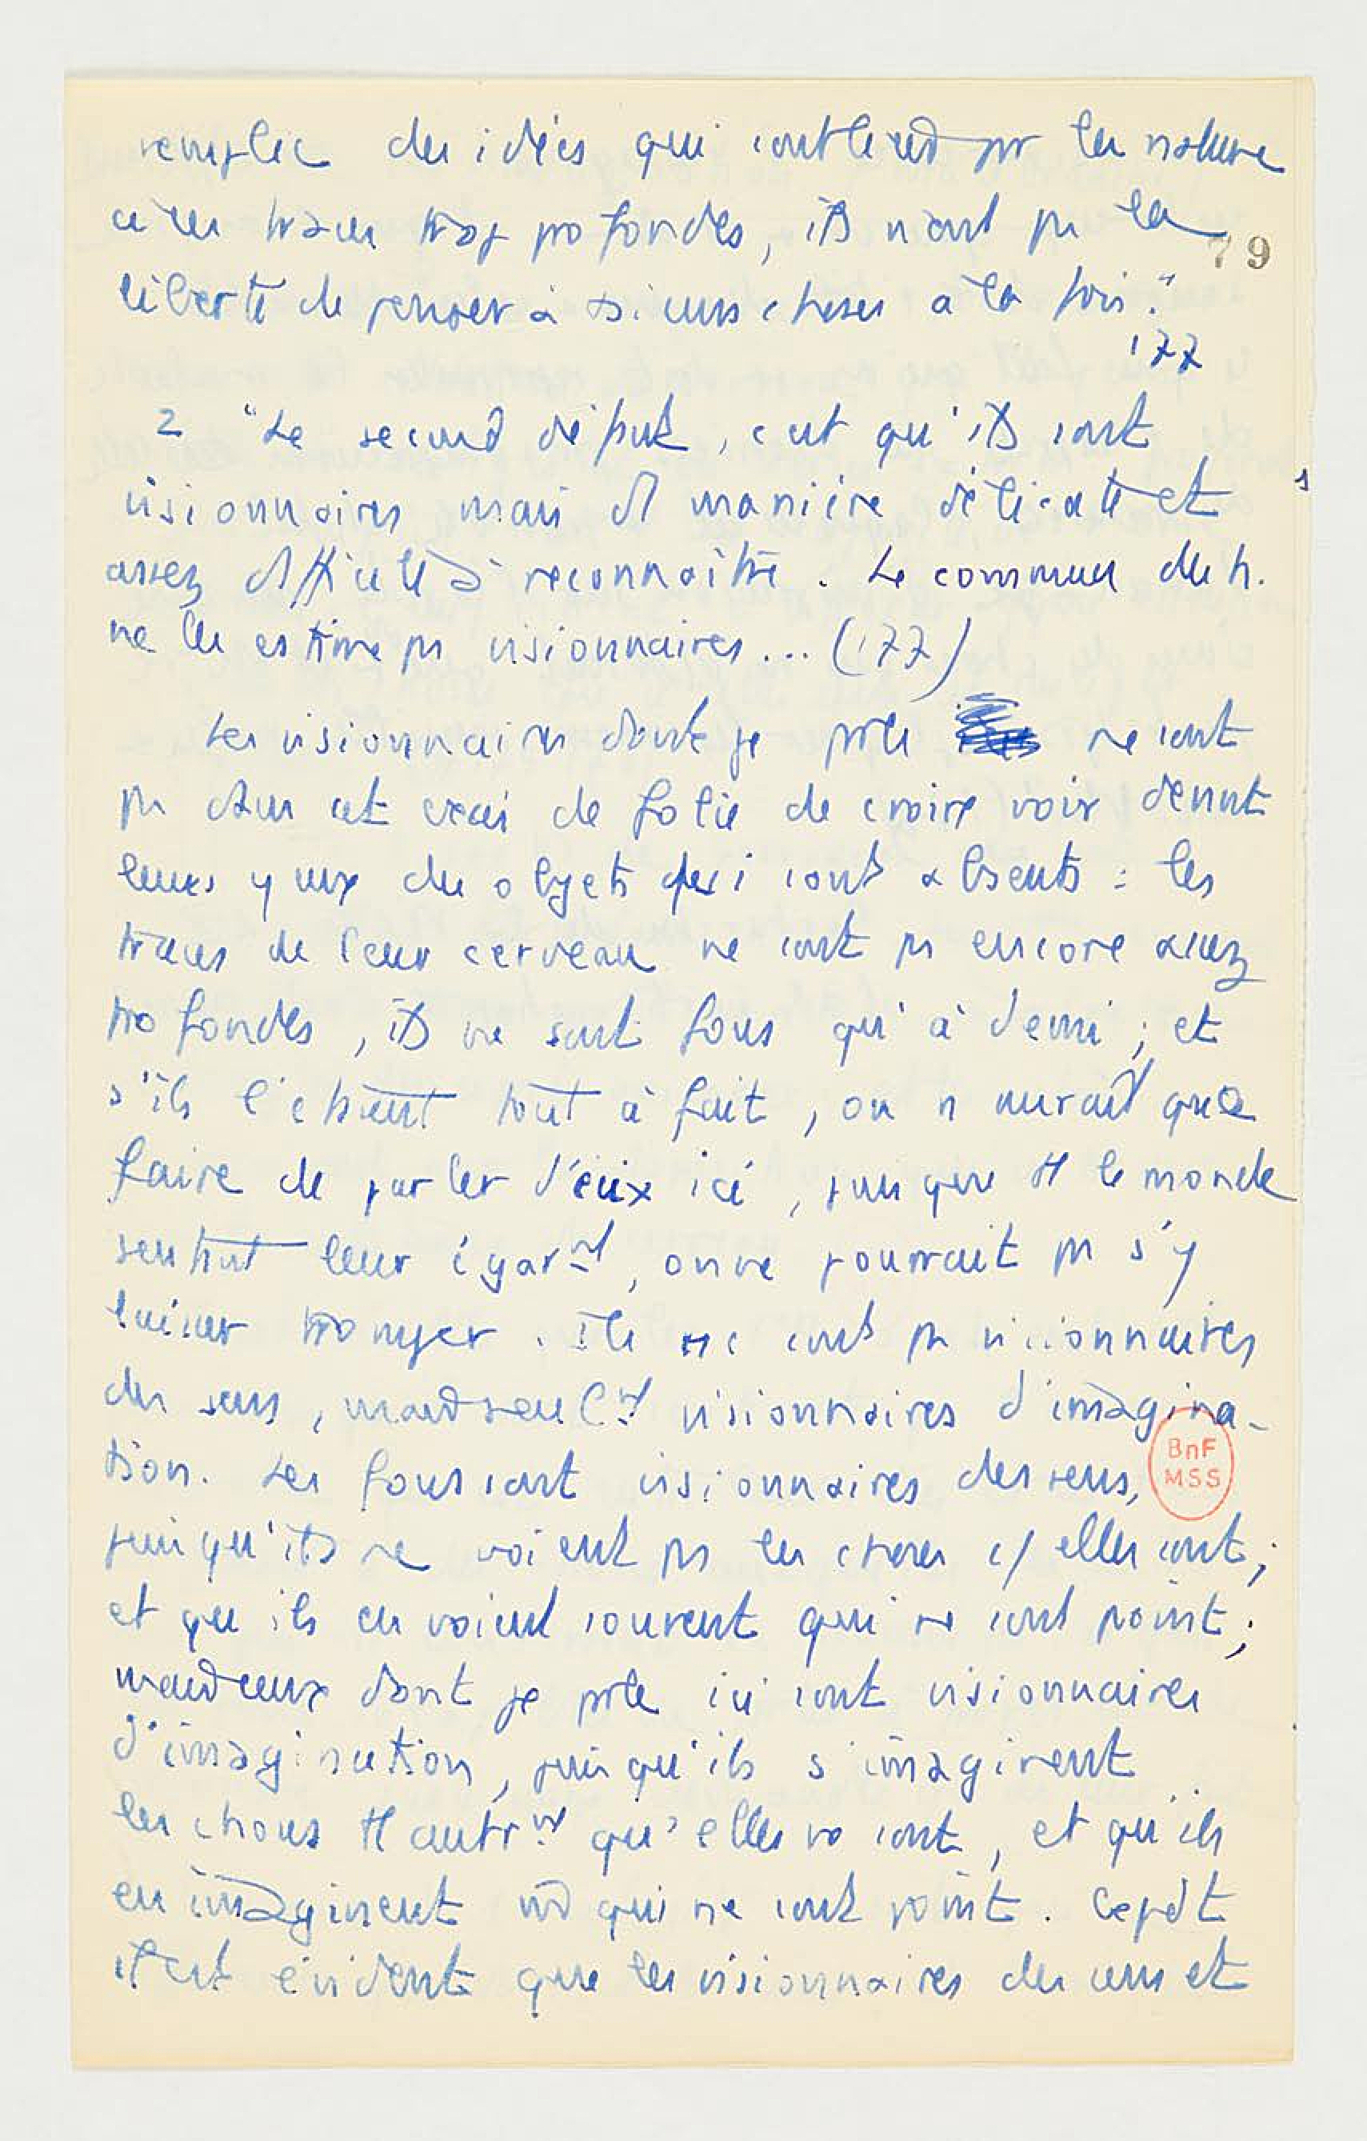 remplie des idées qui sont liées par leur nature
à ces traces trop profondes, ils n'ont pas la
79
liberté de penser à plusieurs choses à la fois."
177
2 "Le second défaut, c'est qu'ils sont
visionnaires mais d'1 manière délicate et
assez difficile à reconnaître. Le commun des h.
ne les estime pas visionnaires... (177)
Les visionnaires dont je parle ne sont
pas dans cet excès de folie de croire voir devant
leurs yeux des objets qui sont absents : les
traces de leur cerveau ne sont pas encore assez
profondes, ils ne sont fous qu'à demi ; et
s'ils l'étaient tout à fait, on n'aurait que
faire de parler d'eux ici, puisque tt le monde
sentant leur égarmt, on ne pourrait pas s'y
laisser tromper. Ils ne sont pas visionnaires
des sens, mais seulmt visionnaires d'imagina-
tion. Les fous sont visionnaires des sens,
BnF
MSS
puisqu'ils ne voient pas les choses c/ elles sont ;
et qu'ils en voient souvent qui ne sont point ;
mais ceux dont je parle ici sont visionnaires
d'imagination, puisqu'ils s'imaginent
les choses tt autrmt qu'elles ne sont, et qu'ils
en imaginent qui ne sont point. Cepdt
il est évident que les visionnaires des sens et